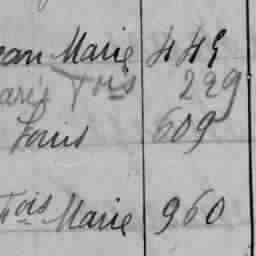 ean Marie 445
arie Fois 229
Louis 609
Fois Marie 960